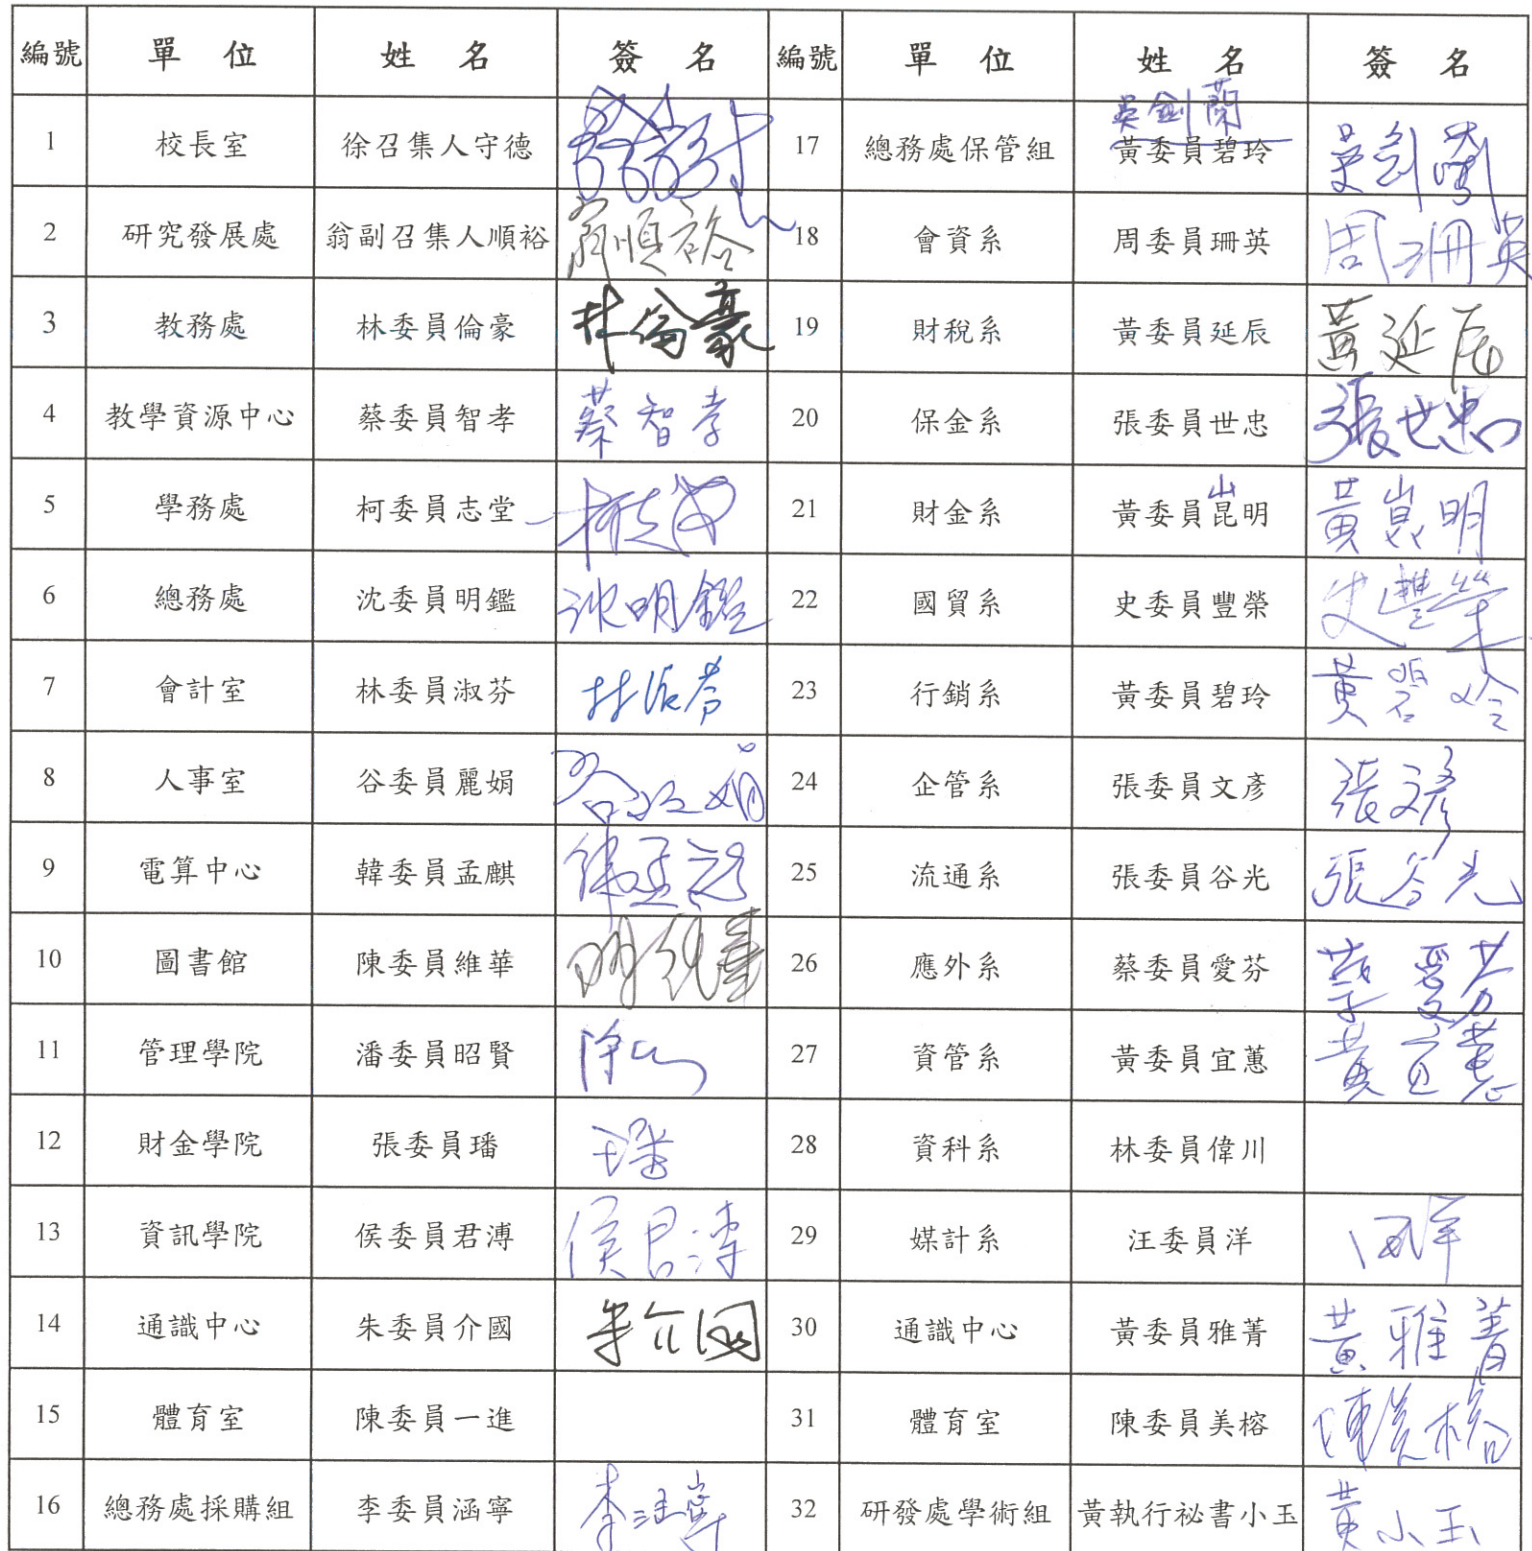 編號 單位 姓名 簽名 編號 單位 姓名 簽名
吳劍蘭
1 校長室 徐召集人守德 17 總務處保管組 黃委員碧玲 吳劍蘭
2 研究發展處 翁副召集人順裕 翁順裕 18 會資系 周委員珊英 周珊英
3 教務處 林委員倫豪 林倫豪 19 財稅系 黃委員延辰 黃延辰
4 教學資源中心 蔡委員智孝 蔡智孝 20 保金系 張委員世忠 張世忠
山
5 學務處 柯委員志堂 柯志堂 21 財金系 黃委員昆明 黃崑明
6 總務處 沈委員明鑑 沈明鑑 22 國貿系 史委員豐榮 史豐榮
7 會計室 林委員淑芬 林淑芬 23 行銷系 黃委員碧玲 黃碧玲
8 人事室 谷委員麗娟 谷麗娟 24 企管系 張委員文彥 張文彥
9 電算中心 韓委員孟麒 韓孟麒 25 流通系 張委員谷光 張谷光
10 圖書館 陳委員維華 陳維華 26 應外系 蔡委員愛芬 蔡愛芬
11 管理學院 潘委員昭賢 27 資管系 黃委員宜蕙 黃宜蕙
12 財金學院 張委員璠 璠 28 資科系 林委員偉川
13 資訊學院 侯委員君溥 侯君溥 29 媒計系 汪委員洋 汪洋
14 通識中心 朱委員介國 朱介國 30 通識中心 黃委員雅菁 黃雅菁
15 體育室 陳委員一進 31 體育室 陳委員美榕 陳美榕
16 總務處採購組 李委員涵寧 李涵寧 32 研發處學術組 黃執行祕書小玉 黃小玉